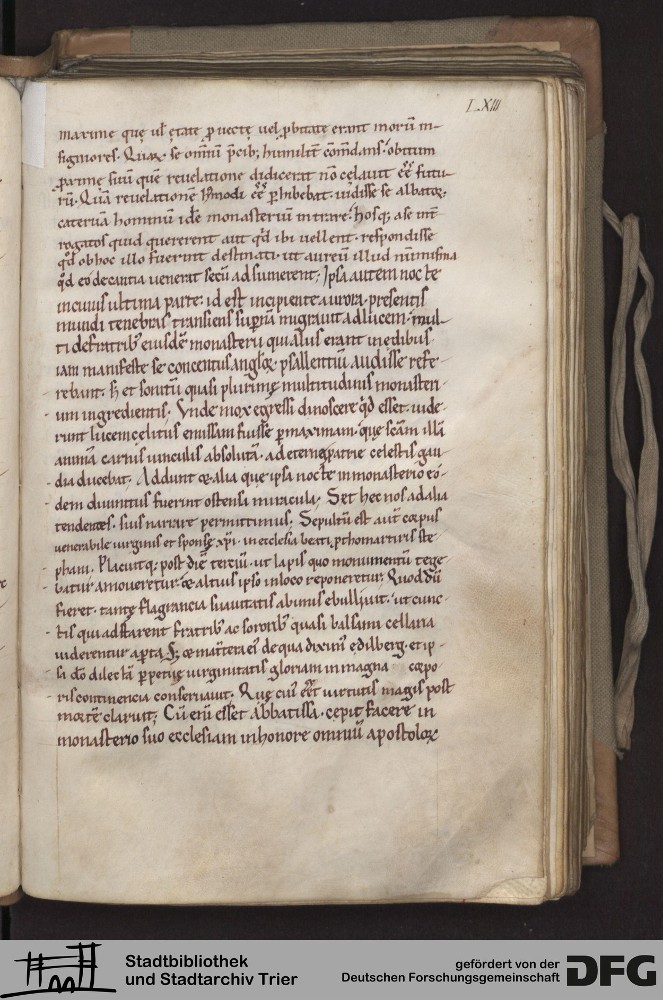 L.XIII
maxime quę uł ętate ꝓuectę uel ꝓbitate erant morū in-
signiores. Quaꝝ se omniū p̄cib; humilit̄ com̄dans. obitum
ꝓxime suū quē reuelatione didicerat n̄o celauit eē̄ futu-
rū. Quā reuelationē hmodi eē̄ ꝑhibebat. uidisse se albatoꝝ
cateruā hominū idē monasteriū intrare. hosq; a se int̄
rogatos quid quererent aut qd̄ ibi uellent. respondisse
qd̄ ob hoc illo fuerint destinati. ut aureū illud numisma
qd̄ eo de cantia uenerat secū adsumerent; Ipsa autem nocte
in cuius ultima parte. id est incipiente aurora. presentis
mundi tenebras transiens supnā migrauit ad lucem. mul-
ti de fratrib' eiusdē monasterii qui alius erant in edibus
iam manifeste se concentus angłoꝝ psallentiū audisse refe-
rebant. s; et sonitū quasi plurimę multitudinis monasteri-
um ingredientis; Vnde mox egressi dinoscere qd̄ esset. uide-
runt lucem celitus emissam fuisse ꝑmaximam. quę scām illā
animā carnis uinculis absolutā. ad eterne patrie celestis gau-
dia ducebat; Addunt & alia que ipsa nocte in monasterio eo-
dem diuinitus fuerint ostensa miracula; Set hec nos ad alia
tendentes. suis narrare permittimus; Sepultū est aut̄ corpus
uenerabile uirginis et sponsę xp̄i. in ecclesia beati ꝓthomartiris ste-
phani. Placuitq; post diē terciū. ut lapis quo monumentū tege-
batur amoueretur. & altius ipso in loco reponeretur; Quod dū
fieret. tantę flagrancia suauitatis ab imis ebulliuit. ut cunc-
tis qui adstarent fratrib' ac sororib' quasi balsami cellaria
uiderentur apta. S; & matertera ei' de qua diximꝰ edilberg. et ip-
si dō dilectā ꝑpetuę uirginitatis gloriam in magna corpo
ris continencia conseruauit. Quę cuiꝰ eēt̄ uirtutis magis post
mortē claruit; Cū enī esset abbatissa. cepit facere in
monasterio suo ecclesiam in honore omniū apostoloꝝ
Stadtbibliothek
und Stadtarchiv Trier
gefördert von der
Deutschen Forschungsgemeinschaft
DFG